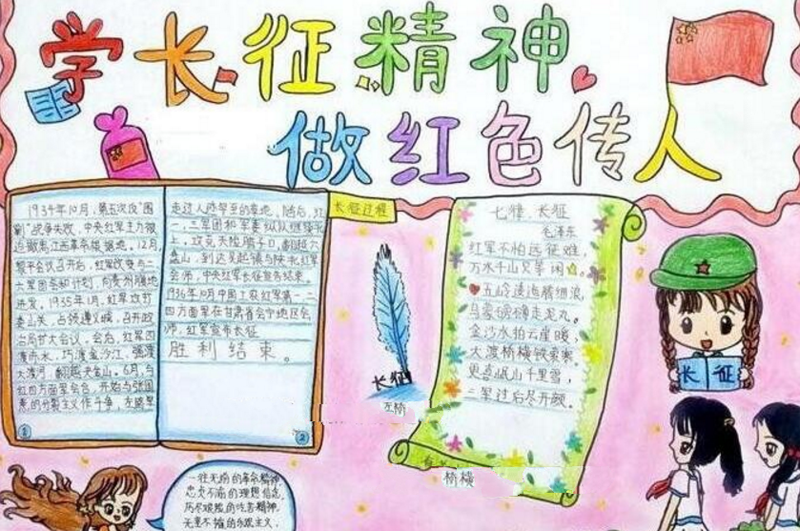 学长征精神
做红色传人
1934年10月,第五次反"围
剿"战争失败,中央红军主力被
迫撤离江西革命根据地。12月,
黎平会议召开后,红军改变与二、
六军团会和计划,向贵州腹地
进发,1935年1月,红军攻打
娄山关,占领遵义城,召开政
治局扩大会议,会后,红军四
渡赤水,巧渡金沙江,强渡
大渡河,翻越夹金山。6月,与
红四方面军会合,开始与张国
焘的分裂主义作斗争,
①
走过人迹罕至的草地,随后,红一
、三军团和军委纵队继续
上,攻克天险腊子口,翻越六
盘山,到达吴起镇与陕北红军
会师,中央红军长征宣告结束。
1936年10月中国工农红军第一、二
四方面军在甘肃省会宁地区会
师,红军宣布长征
胜利结束。
②
长征过程
长征
左桥
七律·长征
毛泽东
红军不怕远征难,
万水千山只等闲。
五岭逶迤腾细浪,
乌蒙磅礴走泥丸。
金沙水拍云崖暖,
大渡桥横铁索寒。
更喜岷山千里雪,
三军过后尽开颜。
桥横
长征
一往无前的革命精神
忠贞不渝的理想信念,
历尽艰险的吃苦精神,
无星不摧的乐观主义,